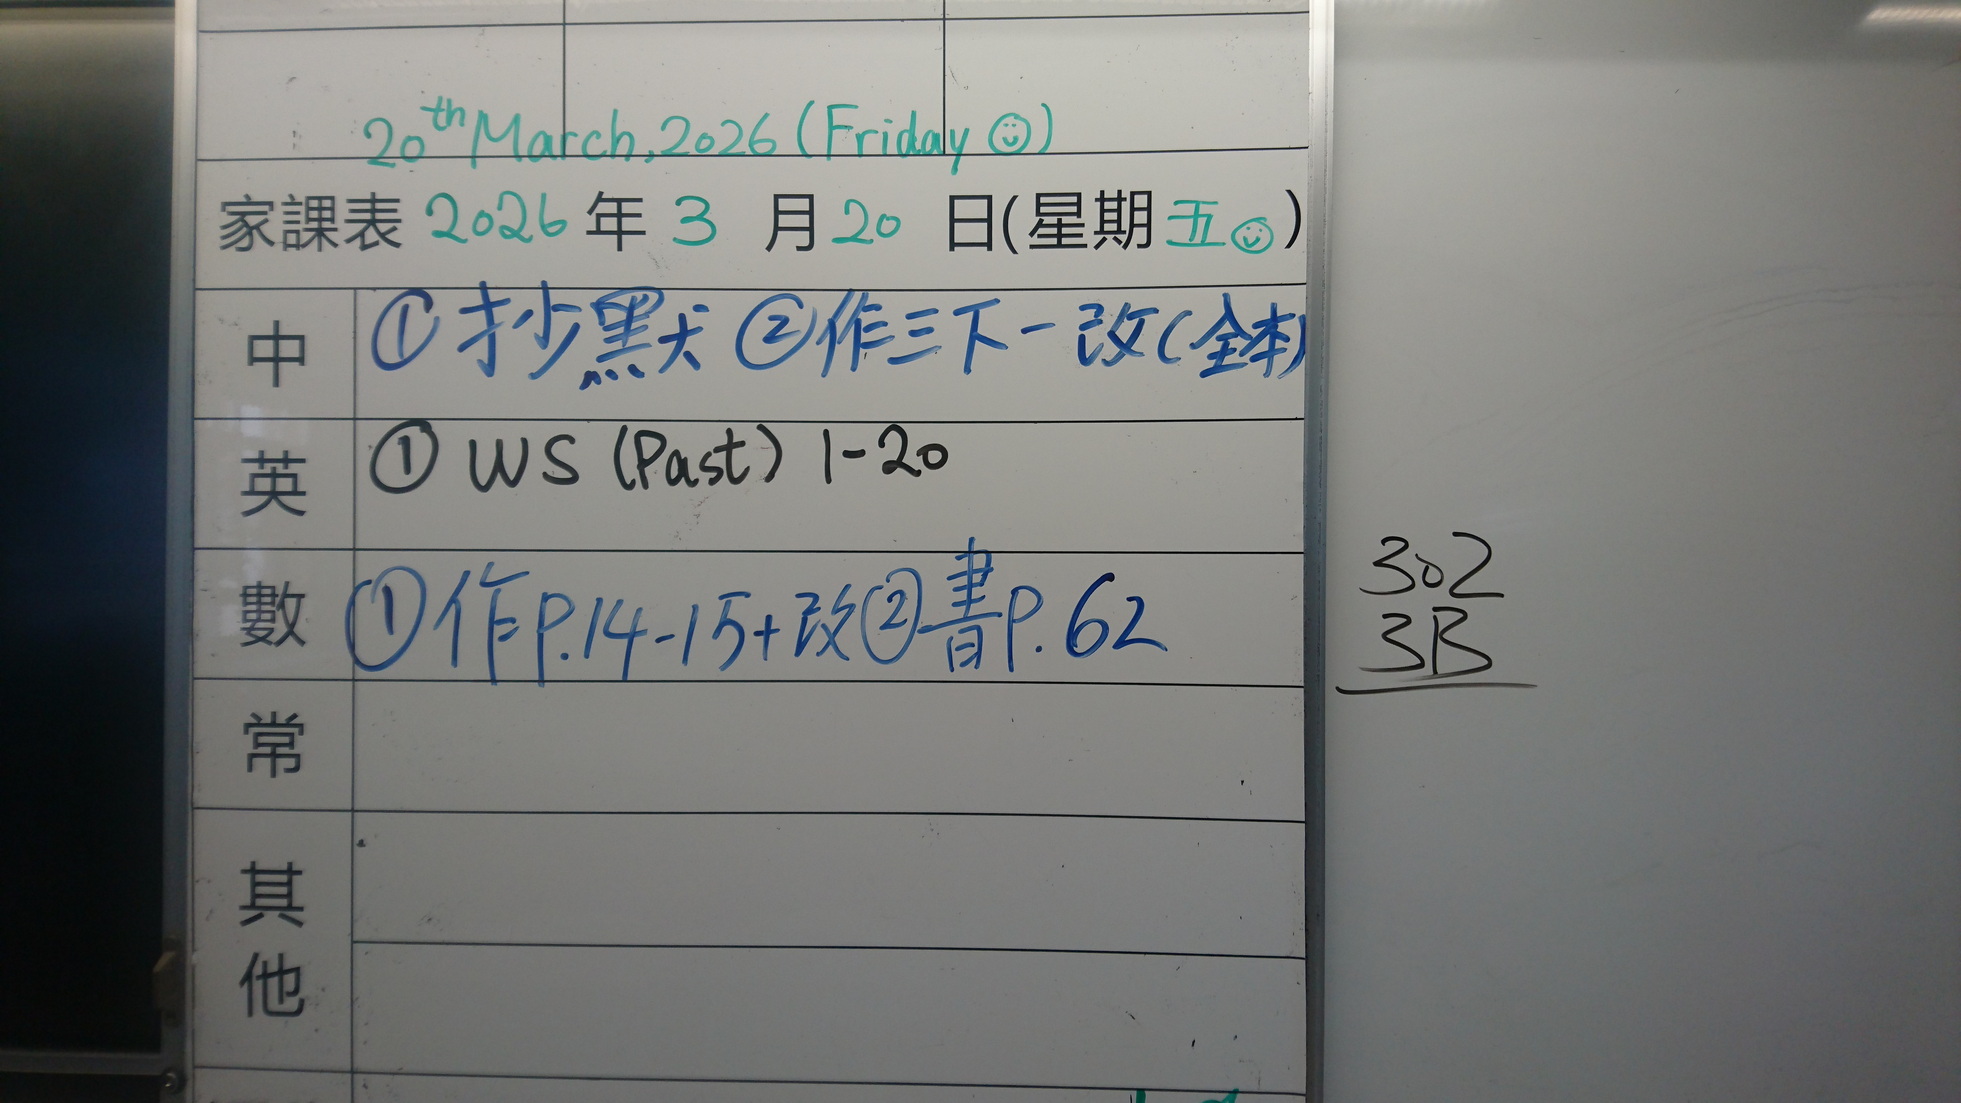 20th March, 2026 (Friday ☺)
家課表 2026 年 3 月 20 日(星期 五 ☺)
中 ①抄默 ②作三下一改(全本)
英 ① WS (Past) 1-20
數 ①作P.14-15+改②書P.62
常
其他
302
3B